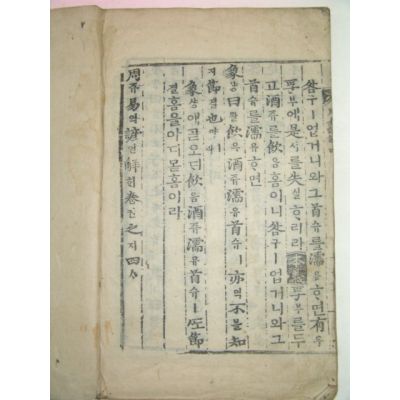 咎구ㅣ업거니와그首슈를濡유ᄒᆞ면有유
孚부애是시를失실ᄒᆞ리라本義孚부를두
고酒쥬를飮음홈이니咎구ㅣ업거니와그
首슈를濡유ᄒᆞ면
象샹曰왈飮음酒쥬濡유首슈ㅣ亦역不블知
지節졀也야ㅣ라
象샹애ᄀᆞᆯ오ᄃᆡ飮음酒쥬濡유首슈ㅣ또節
졀홈을아디몯홈이라
周쥬易역諺언解ᄒᆡ卷권之지四ᄉᆞ